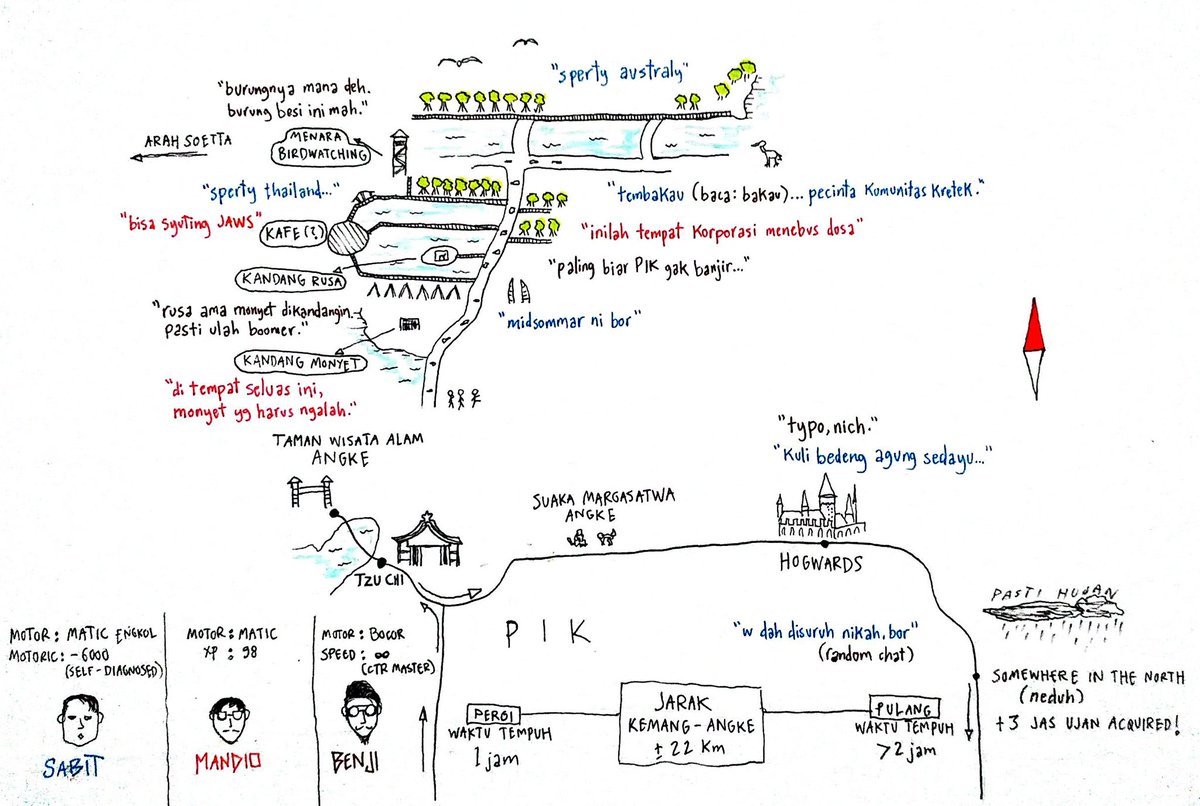 "sperty australy"
"burungnya mana deh.
burung besi ini mah."
ARAH SOETTA
MENARA
BIRDWATCHING
"sperty thailand..."
"bisa syuting JAWS"
KAFE(?)
"tembakau (baca: bakau)... pecinta Komunitas Kretek."
"inilah tempat Korporasi menebus dosa"
KANDANG RUSA
"paling biar PIK gak banjir..."
"rusa ama monyet dikandangin.
pasti ulah boomer."
"midsommar ni bor"
KANDANG MONYET
"di tempat seluas ini,
monyet yg harus ngalah."
TAMAN WISATA ALAM
ANGKE
TZU CHI
SUAKA MARGASATWA
ANGKE
"typo, nich."
"Kuli bedeng agung sedayu..."
HOGWARDS
PASTI HUJAN
PIK
"w dah disuruh nikah, bor"
(random chat)
SOMEWHERE IN THE NORTH
(neduh)
+3 JAS UJAN ACQUIRED!
MOTOR: MATIC ENGKOL
MOTORIC: -6000
(SELF-DIAGNOSED)
SABIT
MOTOR: MATIC
XP : 98
MANDIO
MOTOR: BOCOR
SPEED: ∞
(CTR MASTER)
BENJI
PERGI
WAKTU TEMPUH
1 jam
JARAK
KEMANG-ANGKE
± 22 Km
PULANG
WAKTU TEMPUH
>2 jam